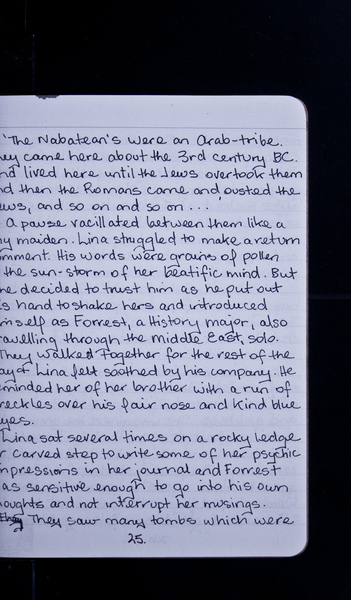 'The Nabatean's were an Arab-tribe.
ey came here about the 3rd century BC.
nd lived here until the Jews overtook them
nd then the Romans came and ousted the
ews, and so on and so on . . . '
A pause vacillated between them like a
y maiden. Lina struggled to make a return
mment. His words were grains of pollen
the sun-storm of her beatific mind. But
he decided to trust him as he put out
s hand to shake hers and introduced
mself as Forrest, a History major, also
ravelling through the middle East, solo.
They walked together for the rest of the
ay of Lina felt soothed by his company. He
eminded her of her brother with a run of
reckles over his fair nose and kind blue
yes.
Lina sat several times on a rocky ledge
r carved step to write some of her psychic
mpressions in her journal and Forrest
as sensitive enough to go into his own
oughts and not interrupt her musings.
They They saw many tombs which were
25.